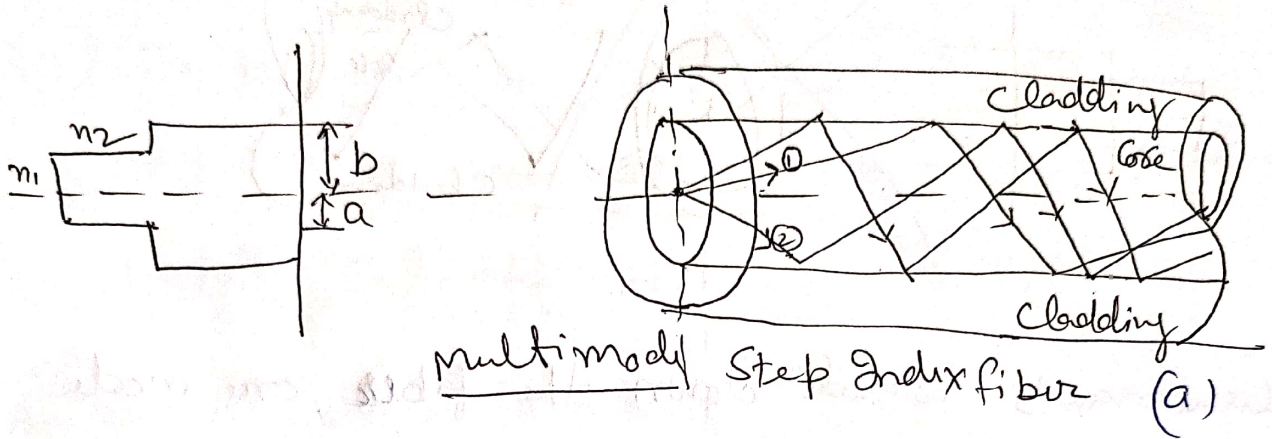 n2
n1
b
a
Cladding
Core
①
②
Cladding
Multimode Step Index fiber (a)